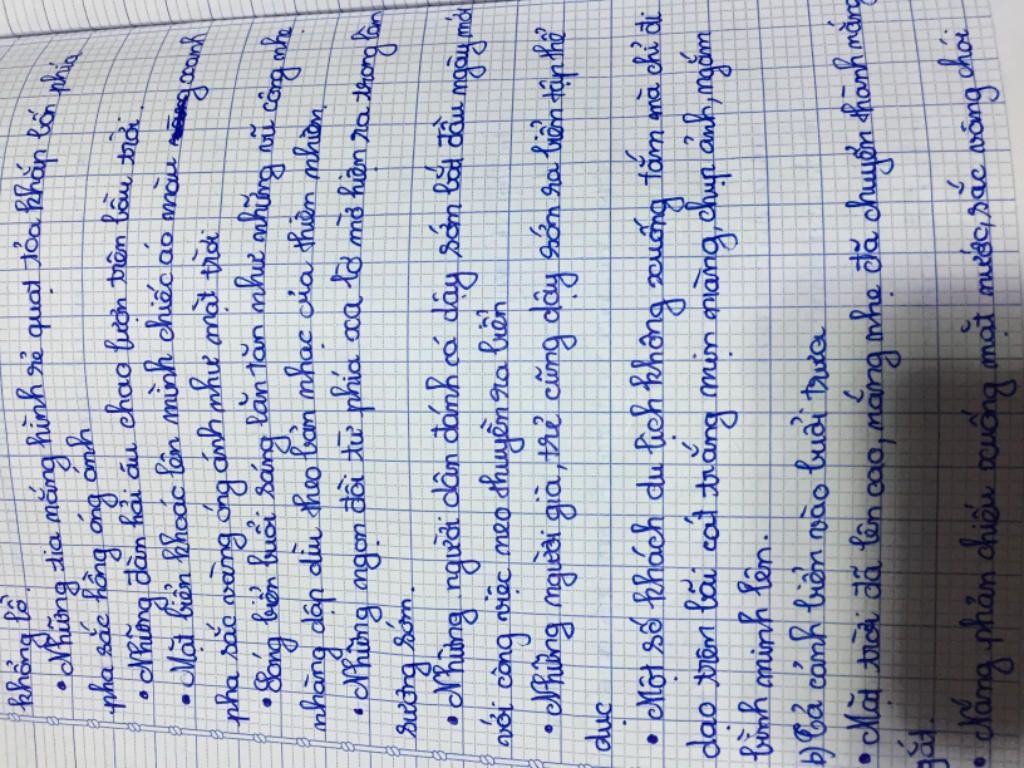 khổng lồ.
• Những tia nắng hình rẻ quạt tỏa khắp bốn phía
pha sắc hồng óng ánh
• Những đàn hải âu chao lượn trên bầu trời.
• Mặt biển khoác lên mình chiếc áo màu xanh
pha sắc vàng óng ánh như mặt trời
• Sóng biển buổi sáng lăn tăn như những vũ công nhẹ
nhàng dập dìu theo bản nhạc của thiên nhiên.
• Những ngọn đồi từ phía xa lờ mờ hiện ra trong làn
sương sớm.
• Những người dân đánh cá dậy sớm bắt đầu ngày mới
với công việc neo thuyền ra biển
• Những người già, trẻ cũng dậy sớm ra biển tập thể
dục
• Một số khách du lịch không xuống tắm mà chỉ đi
dạo trên bãi cát trắng mịn màng, chụp ảnh, ngắm
bình minh lên.
b) Tả cảnh biển vào buổi trưa
• Mặt trời đã lên cao, nắng nhẹ đã chuyển thành nắng
gắt.
• Nắng phản chiếu xuống mặt nước, sắc vàng chói